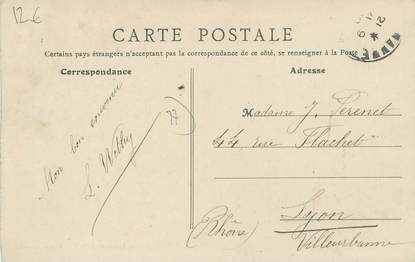 12€
CARTE POSTALE
Certains pays étrangers n'acceptant pas la correspondance de ce côté, se renseigner à la Poste
Correspondance
Adresse
Mon bon souvenir
77
Madame J.
44, rue Flachet
Lyon
(Rhône)
Villeurbanne